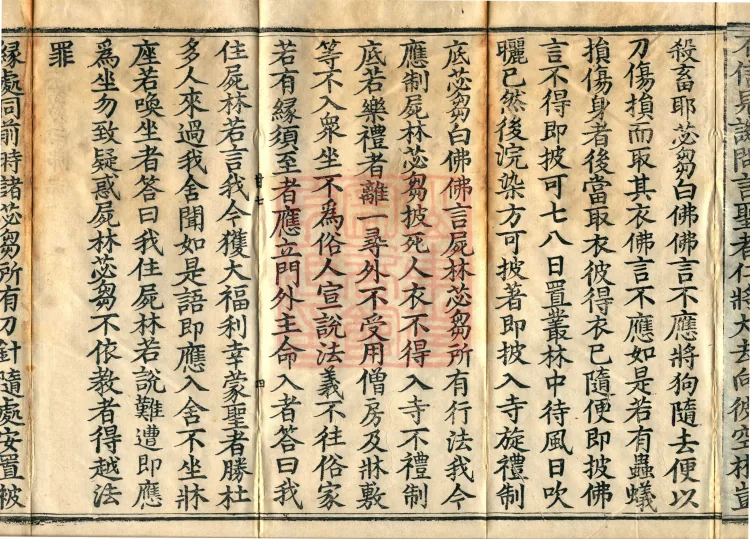 信是語問言聖者仁將犬去向彼空林豈
殺畜耶苾芻白佛佛言不應將狗隨去便以
刀傷損而取其衣佛言不應如是若有蟲蟻
損傷身者後當取衣彼得衣已隨便即披佛
言不得即披可七八日置叢林中待風日吹
曬已然後浣染方可披著即披入寺旋禮制
底苾芻白佛佛言屍林苾芻所有行法我今
應制屍林苾芻披死人衣不得入寺不禮制
底若樂禮者離一尋外不受用僧房及牀敷
等不入衆坐不爲俗人宣說法義不往俗家
若有緣須至者應立門外主命入者答曰我
廿七 四
住屍林若言我今獲大福利幸蒙聖者勝杜
多人來過我舍聞如是語即應入舍不坐牀
座若喚坐者答曰我住屍林若說難遭即應
爲坐勿致疑惑屍林苾芻不依教者得越法
罪
緣處同前時諸苾芻所有刀針隨處安置被